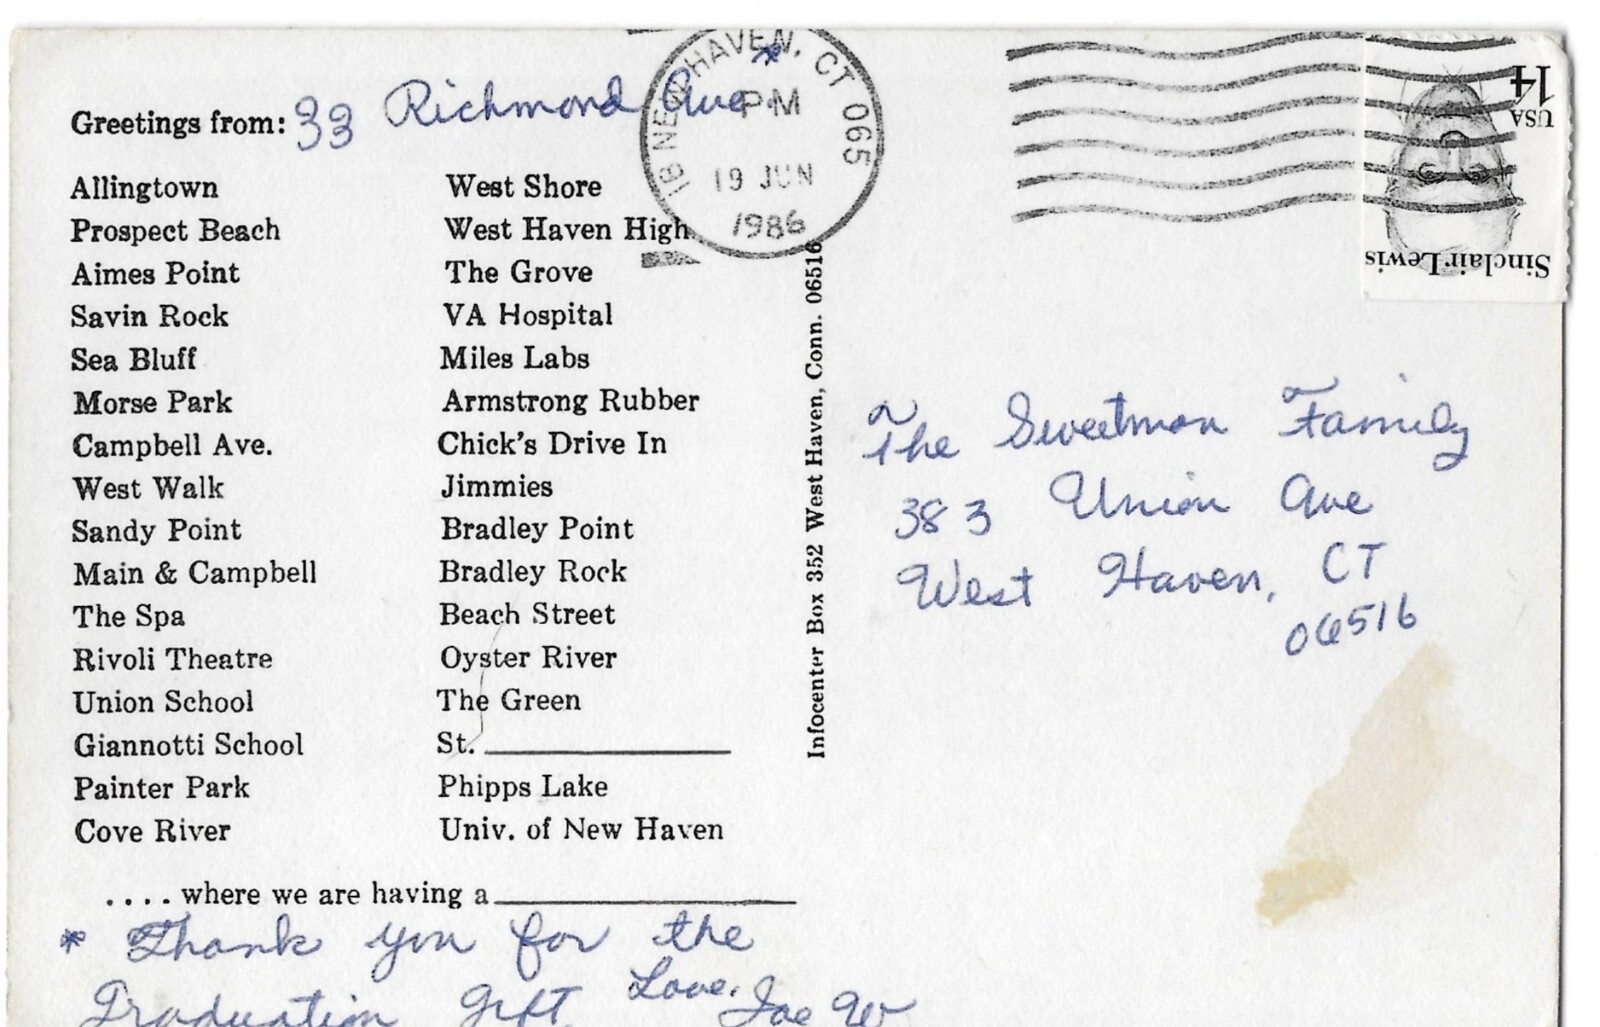 Greetings from: 33 Richmond Ave. *
Allingtown
Prospect Beach
Aimes Point
Savin Rock
Sea Bluff
Morse Park
Campbell Ave.
West Walk
Sandy Point
Main & Campbell
The Spa
Rivoli Theatre
Union School
Giannotti School
Painter Park
Cove River
West Shore
West Haven High
The Grove
VA Hospital
Miles Labs
Armstrong Rubber
Chick's Drive In
Jimmies
Bradley Point
Bradley Rock
Beach Street
Oyster River
The Green
St. ____________
Phipps Lake
Univ. of New Haven
.... where we are having a ____________
* Thank you for the
Graduation Gift.
Love, Joe W
Infocenter Box 352 West Haven, Conn. 06516
NEW HAVEN, CT 065
PM
19 JUN
1986
USA
14
Sinclair Lewis
The Sweetman Family
383 Union Ave
West Haven, CT
06516